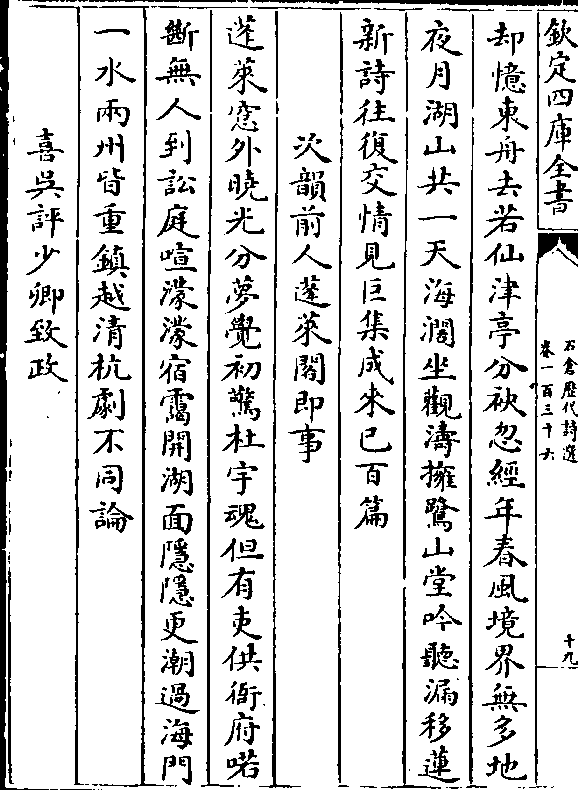 欽定四庫全書
石倉歷代詩選
卷一百三十六
十九
却憶東舟去若仙津亭分袂忽經年春風境界無多地
夜月湖山共一天海濶坐觀濤擁鷺山堂吟聽漏移蓮
新詩往復交情見巨集成來已百篇
次韻前人蓬萊閣即事
蓬萊窓外曉光分夢覺初驚杜宇魂但有吏供衙府喏
斷無人到訟庭喧濛濛宿靄開湖面隱隱更潮過海門
一水兩州皆重鎮越清杭劇不同論
喜吳評少卿致政